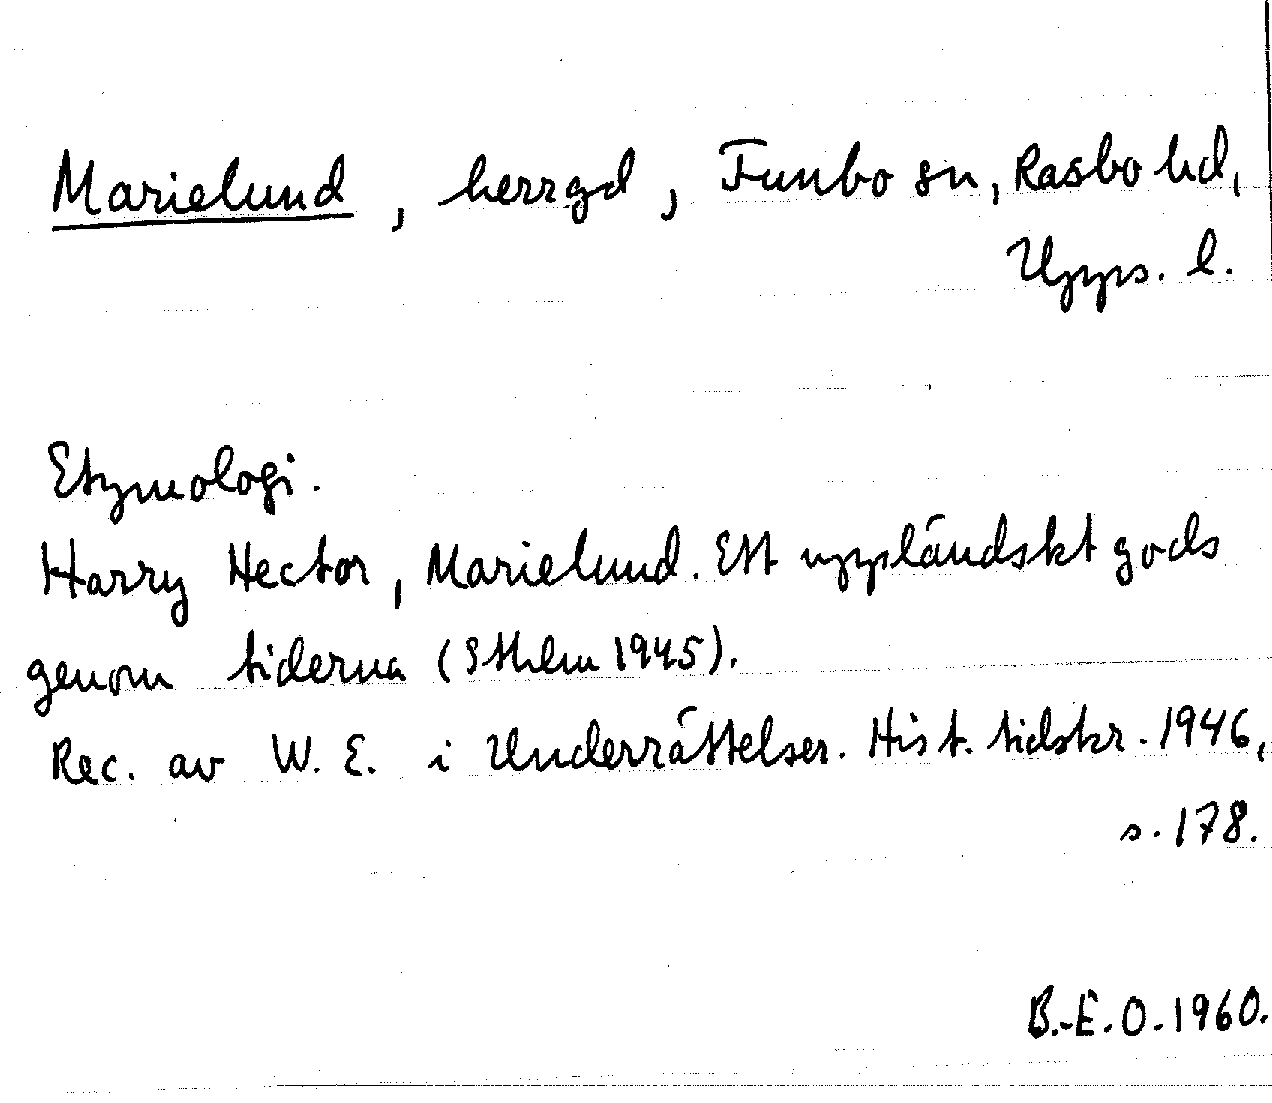 Marielund, herrgd, Funbo sn, Rasbo hd,
Upps. l.
Etymologi.
Harry Hector, Marielund. Ett uppländskt gods
genom tiderna (Sthlm 1945).
Rec. av W. E. i Underrättelser. Hist. tidskr. 1946,
s. 178.
B.-E. O. 1960.